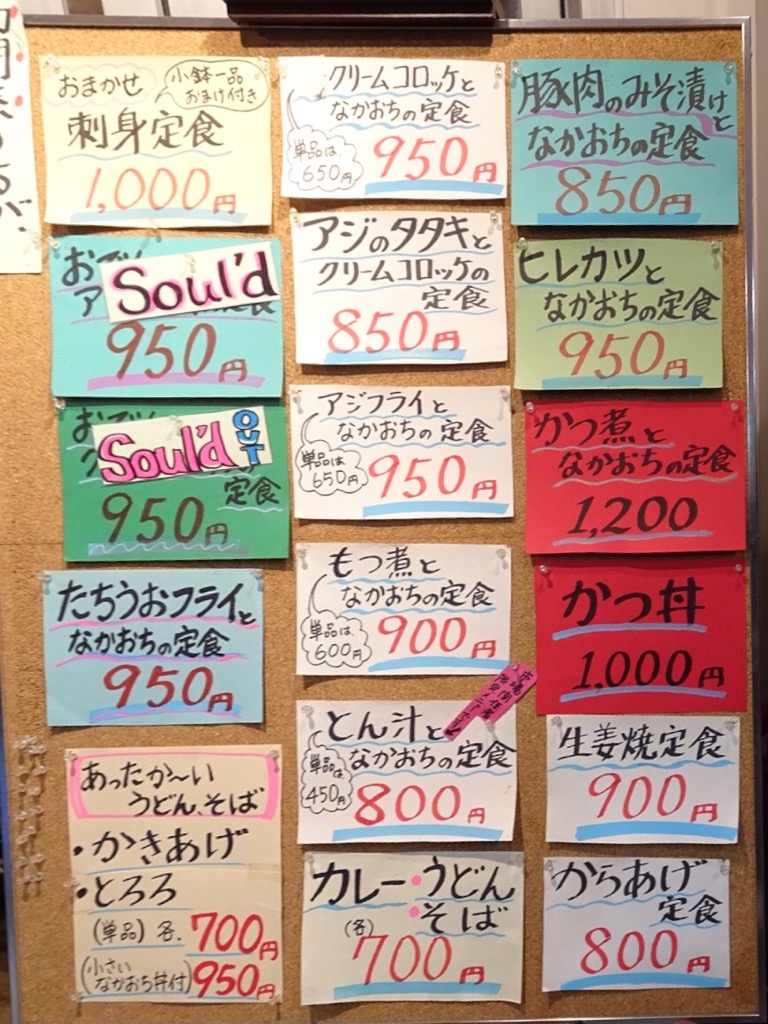 おまかせ
小鉢一品
おまけ付き
刺身定食
1,000円
Soul'd
950円
Soul'd OUT
定食
950円
たちうおフライと
なかおちの定食
950円
あったか〜い
うどん、そば
・かきあげ
・とろろ
(単品)各.700円
(小さい
なかおち丼付)950円
クリームコロッケと
なかおちの定食
単品は、
650円
950円
アジのタタキと
クリームコロッケの
定食
850円
アジフライと
なかおちの定食
単品は
650円
950円
もつ煮と
なかおちの定食
単品は、
600円
900円
とん汁と
なかおちの定食
単品は
450円
800円
カレー・うどん
・そば
(各)
700円
豚肉のみそ漬けと
なかおちの定食
850円
ヒレカツと
なかおちの定食
950円
かつ煮と
なかおちの定食
1,200
かつ丼
1,000円
生姜焼定食
900円
からあげ
定食
800円